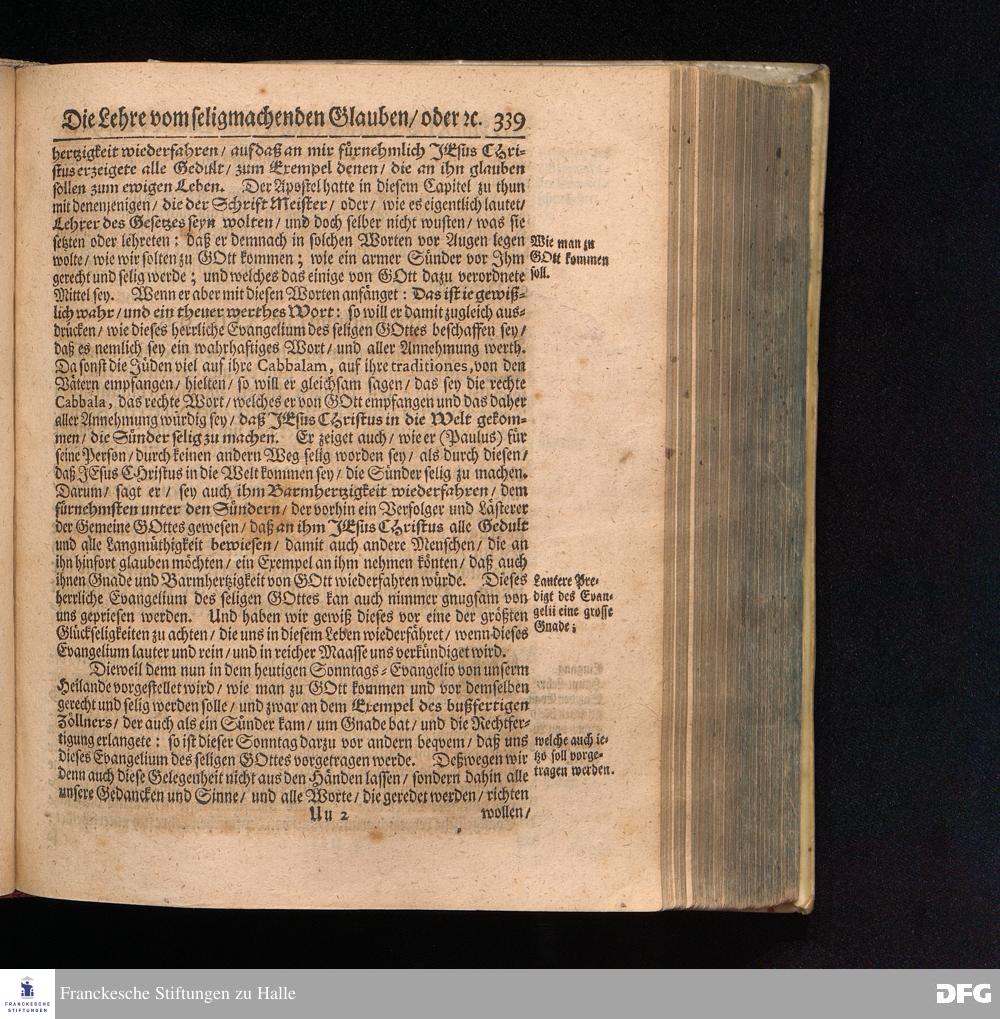 Die Lehre vom seligmachenden Glauben/ oder ꝛc. 339
hertzigkeit wiederfahren/ auf daß an mir fürnehmlich JEsus CHri-
stus erzeigete alle Gedult/ zum Exempel denen/ die an ihn glauben
sollen zum ewigen Leben. Der Apostel hatte in diesem Capitel zu thun
mit denenjenigen/ die der Schrift Meister/ oder/ wie es eigentlich lautet/
Lehrer des Gesetzes seyn wolten/ und doch selber nicht wusten/ was sie
setzten oder lehreten: daß er demnach in solchen Worten vor Augen legen
wolte/ wie wir solten zu GOtt kommen; wie ein armer Sünder vor Ihm
gerecht und selig werde; und welches das einige von GOtt dazu verordnete
Mittel sey. Wenn er aber mit diesen Worten anfänget: Das ist ie gewiß-
lich wahr/ und ein theuer werthes Wort: so will er damit zugleich aus-
drücken/ wie dieses herrliche Evangelium des seligen GOttes beschaffen sey/
daß es nemlich sey ein wahrhaftiges Wort/ und aller Annehmung werth.
Da sonst die Jüden viel auf ihre Cabbalam, auf ihre traditiones, von den
Vätern empfangen/ hielten/ so will er gleichsam sagen/ das sey die rechte
Cabbala, das rechte Wort/ welches er von GOtt empfangen und das daher
aller Annehmung würdig sey/ daß JEsus CHristus in die Welt gekom-
men/ die Sünder selig zu machen. Er zeiget auch/ wie er (Paulus) für
seine Person/ durch keinen andern Weg selig worden sey/ als durch diesen/
daß JEsus CHristus in die Welt kommen sey/ die Sünder selig zu machen.
Darum/ sagt er/ sey auch ihm Barmhertzigkeit wiederfahren/ dem
fürnehmsten unter den Sündern/ der vorhin ein Verfolger und Lästerer
der Gemeine GOttes gewesen/ daß an ihm JEsus CHristus alle Gedult
und alle Langmüthigkeit bewiesen/ damit auch andere Menschen/ die an
ihn hinfort glauben möchten/ ein Exempel an ihm nehmen könten/ daß auch
ihnen Gnade und Barmhertzigkeit von GOtt wiederfahren würde. Dieses
herrliche Evangelium des seligen GOttes kan auch nimmer gnugsam von
uns gepriesen werden. Und haben wir gewiß dieses vor eine der größten
Glückseligkeiten zu achten/ die uns in diesem Leben wiederfähret/ wenn dieses
Evangelium lauter und rein/ und in reicher Maasse uns verkündiget wird.
Dieweil denn nun in dem heutigen Sonntags-Evangelio von unserm
Heilande vorgestellet wird/ wie man zu GOtt kommen und vor demselben
gerecht und selig werden solle/ und zwar an dem Exempel des bußfertigen
Zöllners/ der auch als ein Sünder kam/ um Gnade bat/ und die Rechtfer-
tigung erlangete: so ist dieser Sonntag darzu vor andern beqvem/ daß uns
dieses Evangelium des seligen GOttes vorgetragen werde. Deßwegen wir
denn auch diese Gelegenheit nicht aus den Händen lassen/ sondern dahin alle
unsere Gedancken und Sinne/ und alle Worte/ die geredet werden/ richten
Uu 2 wollen/
Wie man zu
GOtt kommen
soll.
Lautere Pre-
digt des Evan-
gelii eine grosse
Gnade;
welche auch ie-
tzo soll vorge-
tragen werden.
FRANCKESCHE
STIFTUNGEN
Franckesche Stiftungen zu Halle
DFG